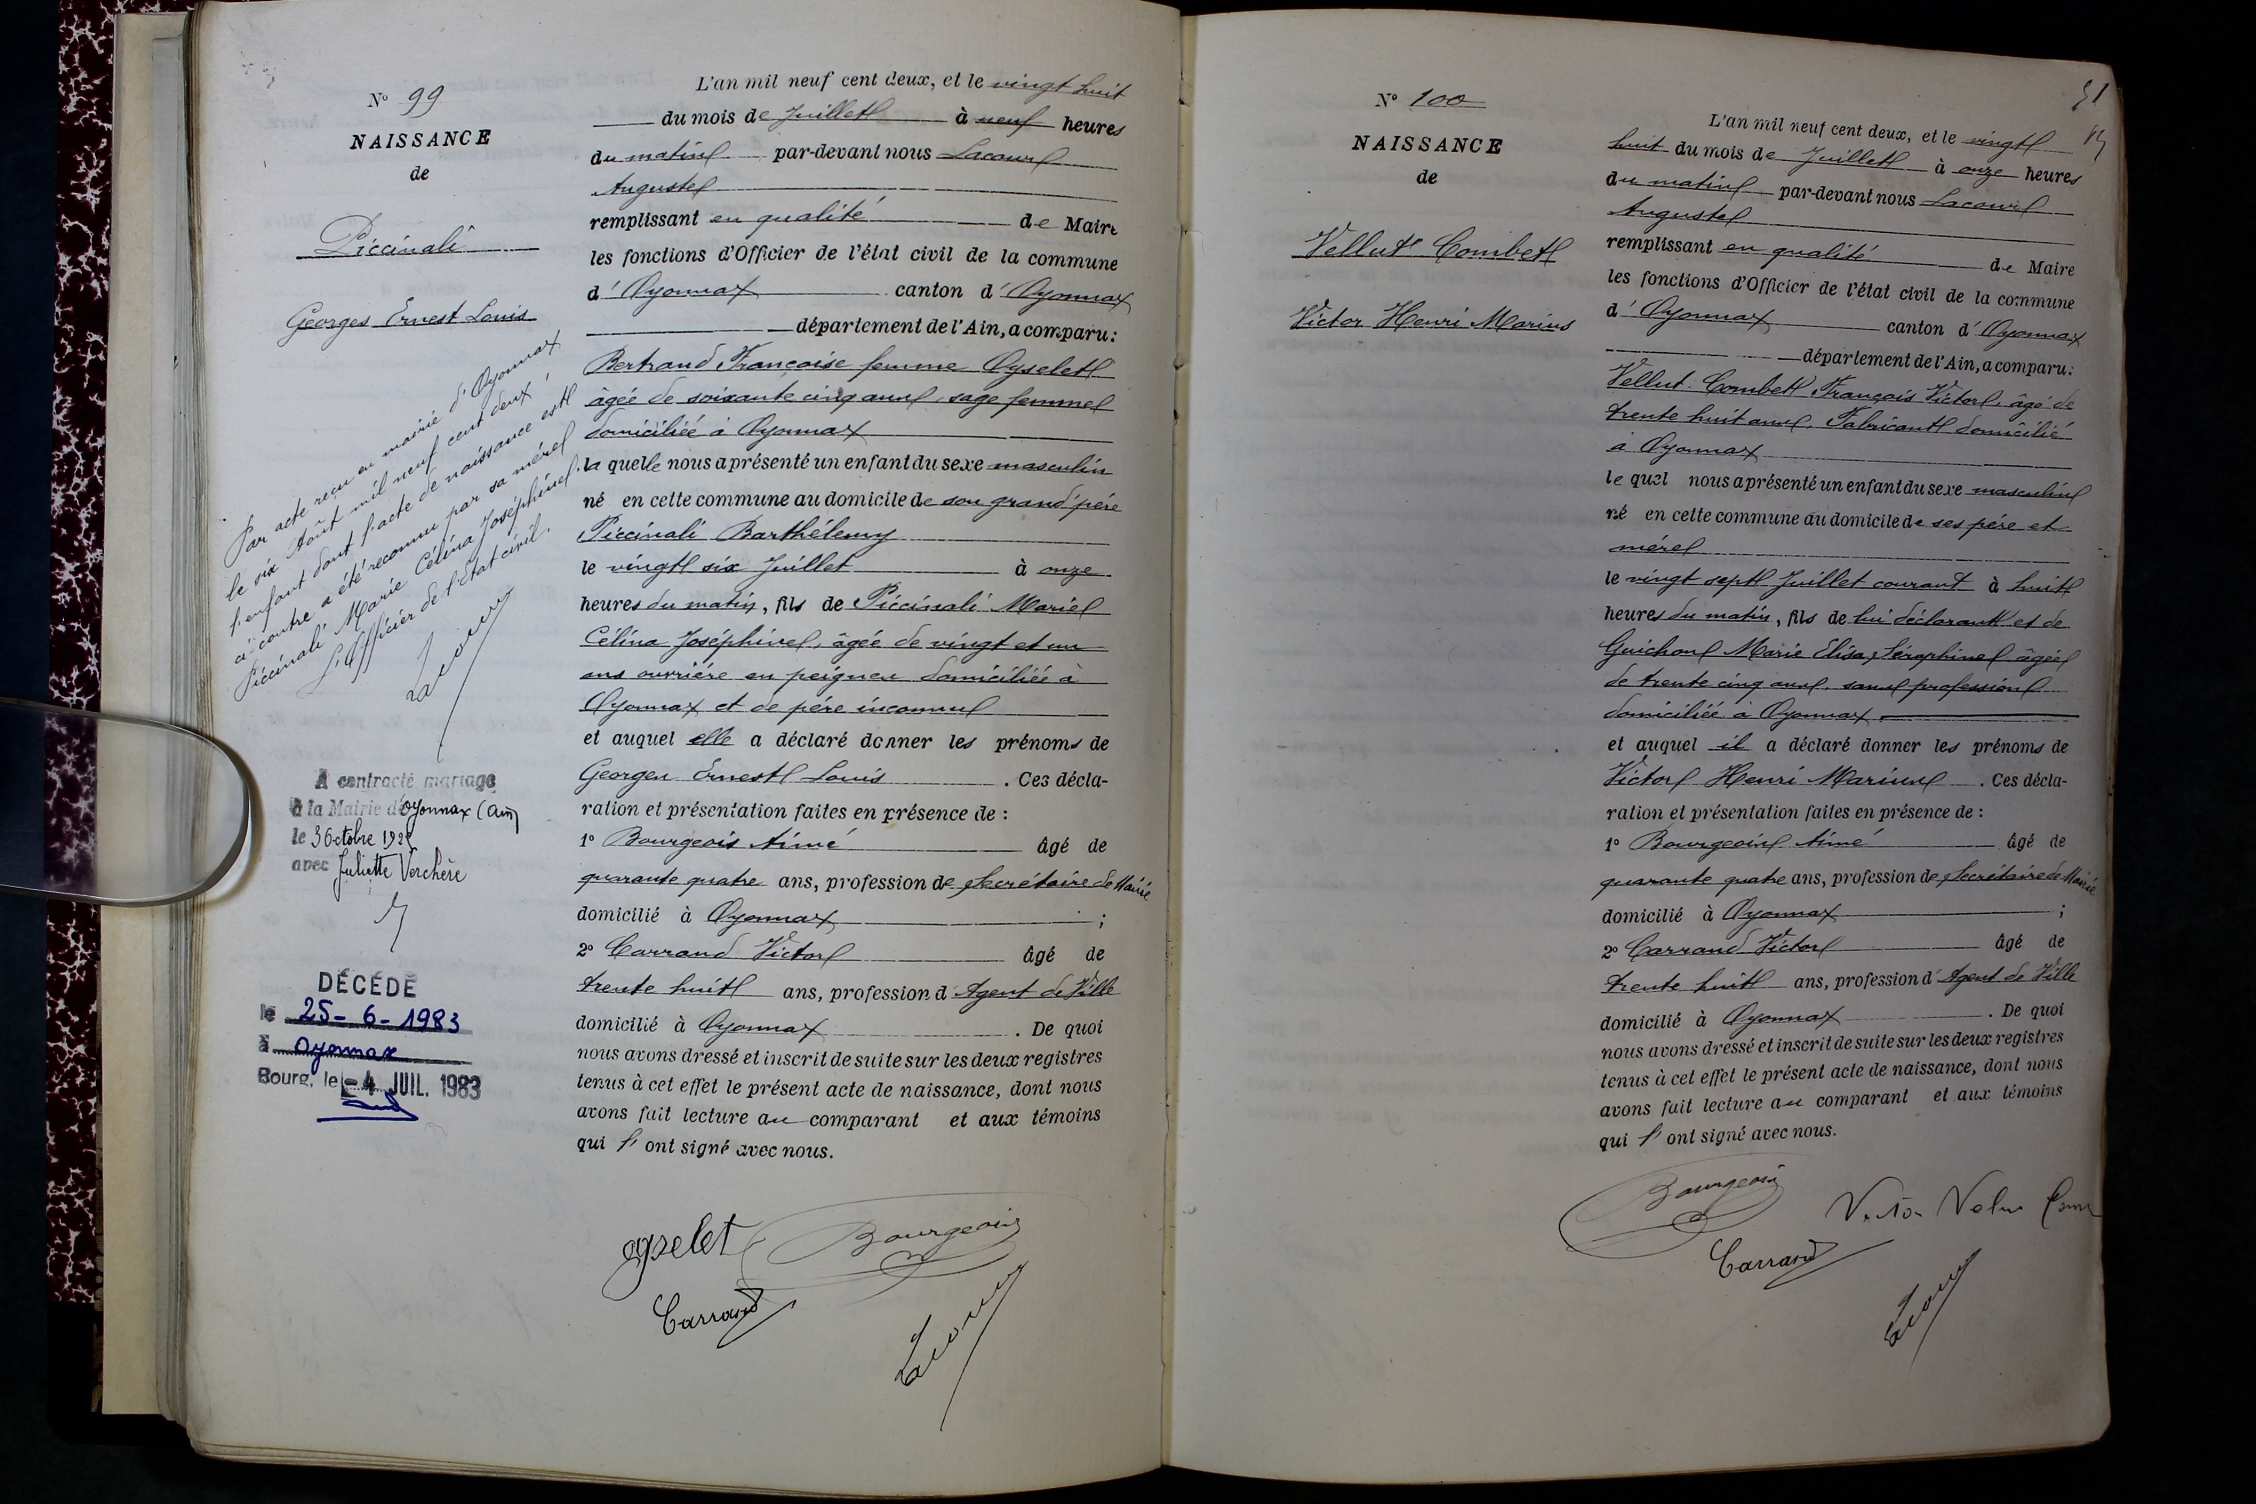 N° 99
NAISSANCE
de
Piccinali
Georges Ernest Louis
Par acte reçu en mairie d'Oyonnax
le six Août mil neuf cent deux,
l'enfant dont l'acte de naissance est
ci-contre a été reconnu par sa mère
Piccinali Marie Célina Joséphine.
L'Officier de l'Etat civil.
Lacour
A contracté mariage
à la Mairie d'Oyonnax (Ain)
le 3 Octobre
avec Juliette Verchère
DÉCÉDÉ
le 25-6-1983
à Oyonnax
Bourg, le -4 JUIL. 1983
L'an mil neuf cent deux, et le vingt huit
du mois de Juillet à neuf heures
du matin par-devant nous Lacour
Auguste
remplissant en qualité de Maire
les fonctions d'Officier de l'état civil de la commune
d'Oyonnax canton d'Oyonnax
département de l'Ain, a comparu:
Bertrand Françoise femme Oyselet
âgée de soixante cinq ans, sage femme
domiciliée à Oyonnax
la quelle nous a présenté un enfant du sexe masculin
né en cette commune au domicile de son grand'père
Piccinali Barthélemy
le vingt six Juillet à onze
heures du matin, fils de Piccinali Marie
Célina Joséphine, âgée de vingt et un
ans ouvrière en peignes domiciliée à
Oyonnax et de père inconnu
et auquel elle a déclaré donner les prénoms de
Georges Ernest Louis. Ces décla-
ration et présentation faites en présence de :
1° Bourgeois Aimé âgé de
quarante quatre ans, profession de Secrétaire de Mairie
domicilié à Oyonnax ;
2° Carrand Victor âgé de
trente huit ans, profession d'Agent de Ville
domicilié à Oyonnax. De quoi
nous avons dressé et inscrit de suite sur les deux registres
tenus à cet effet le présent acte de naissance, dont nous
avons fait lecture au comparant et aux témoins
qui l'ont signé avec nous.
Oyselet Bourgeois
Carrand
Lacour
51
N° 100
NAISSANCE
de
Vellut Combet
Victor Henri Marius
L'an mil neuf cent deux, et le vingt
huit du mois de Juillet à onze heures
du matin par-devant nous Lacour
Auguste
remplissant en qualité de Maire
les fonctions d'Officier de l'état civil de la commune
d'Oyonnax canton d'Oyonnax
département de l'Ain, a comparu:
Vellut Combet François Victor, âgé de
trente huit ans, Fabricant domicilié
à Oyonnax
le quel nous a présenté un enfant du sexe masculin
né en cette commune au domicile de ses père et
mère
le vingt sept Juillet courant à huit
heures du matin, fils de lui déclarant et de
Guichon Marie Elisa, Séraphine âgée
de trente cinq ans, sans profession
domiciliée à Oyonnax
et auquel il a déclaré donner les prénoms de
Victor Henri Marius. Ces décla-
ration et présentation faites en présence de :
1° Bourgeois Aimé âgé de
quarante quatre ans, profession de Secrétaire de Mairie
domicilié à Oyonnax ;
2° Carrand Victor âgé de
trente huit ans, profession d'Agent de Ville
domicilié à Oyonnax. De quoi
nous avons dressé et inscrit de suite sur les deux registres
tenus à cet effet le présent acte de naissance, dont nous
avons fait lecture au comparant et aux témoins
qui l'ont signé avec nous.
Bourgeois
Carrand
Lacour